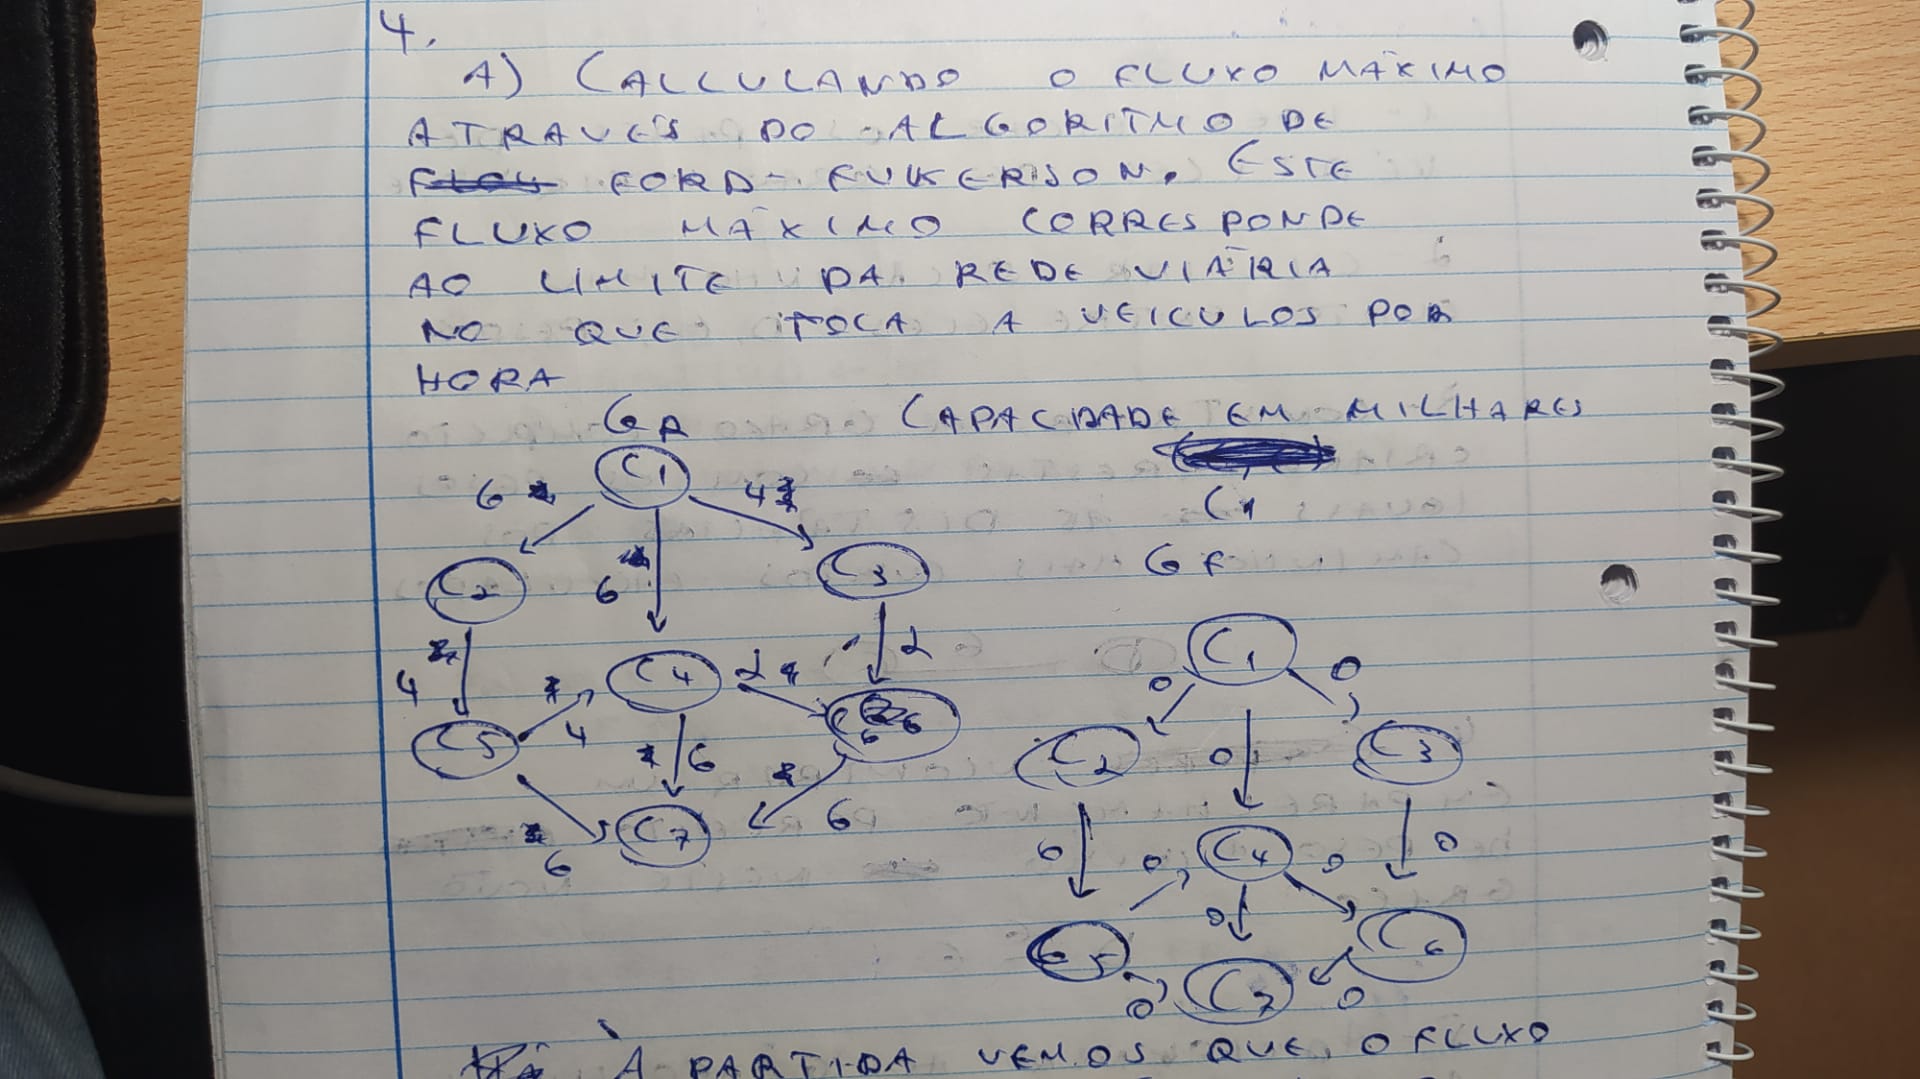 4.
A) CALCULANDO O FLUXO MÁXIMO
ATRAVÉS DO ALGORITMO DE
FORD-FULKERSON. ESTE
FLUXO MÁXIMO CORRESPONDE
AO LIMITE DA REDE VIÁRIA
NO QUE TOCA A VEICULOS POR
HORA
GR CAPACIDADE EM MILHARES
C1
6 4
C1
C2 6 C3 GF
C1
4 C4 2 2
0 0
C5 4 C6
C2 0 C3
6 6
6 C7
0 0 C4 0 0
0
C5 C6
0 C7 0
À PARTIDA VEMOS QUE O FLUXO